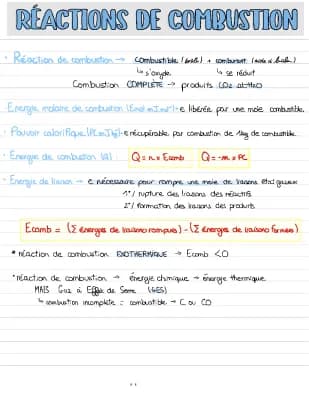 RÉACTIONS DE COMBUSTION
• Réaction de combustion → combustible + comburant
↳ s'oxyde ↳ se réduit
Combustion COMPLÈTE → produits
• Energie molaire de combustion libérée par une mole combustible.
• Pouvoir calorifique récupérable par combustion de 1kg de combustible.
• Energie de combustion Q = n × Ecomb Q = -m × PC
• Energie de liaison → e nécessaire pour rompre une mole de liaisons état gazeux
1°/ rupture des liaisons des réactifs
2°/ formation des liaisons des produits
Ecomb = (Σ énergies de liaisons rompues) - (Σ énergies de liaisons formées)
* réaction de combustion EXOTHERMIQUE → Ecomb < 0
* réaction de combustion → énergie chimique → énergie thermique
MAIS Gaz à Effet de Serre (GES)
↳ combustion incomplète : combustible → C ou CO